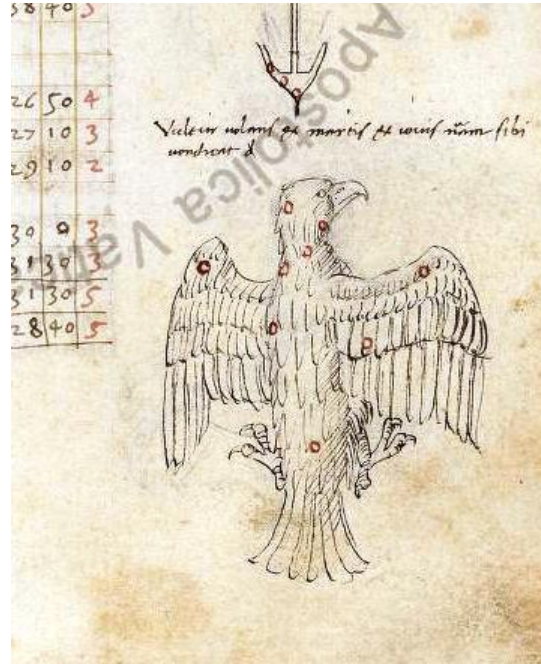 38 40 5
26 50 4
27 10 3
29 10 2
30 0 3
31 30 3
31 30 5
28 40 5
Vultur volans ex martis et iovis nãm sibi
vendicat
Apostolica Vati